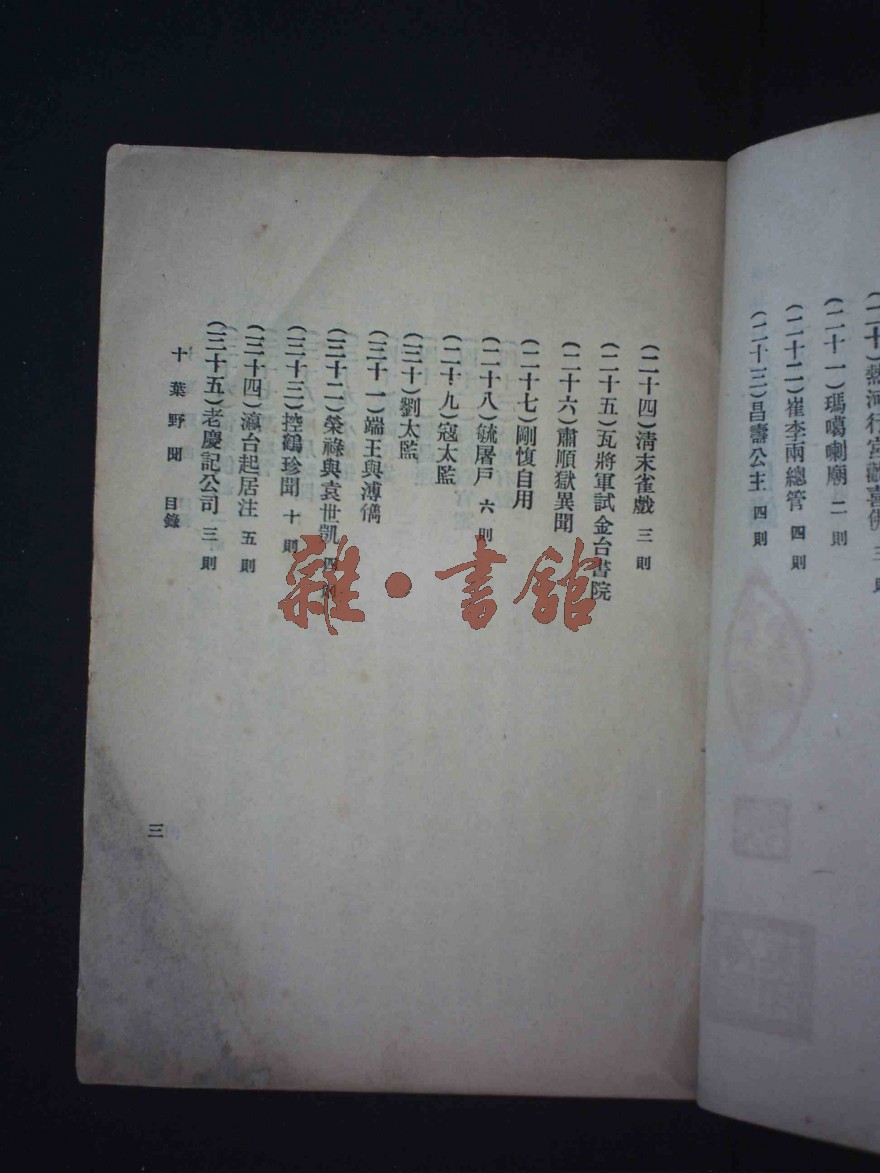 (二十)熱河行宮觀喜佛 三則
(二十一)瑪噶喇廟 二則
(二十二)崔李兩總管 四則
(二十三)昌壽公主 四則
(二十四)清末雀戲 三則
(二十五)瓦將軍試金台書院
(二十六)肅順獄異聞
(二十七)剛愎自用
(二十八)毓屠戶 六則
(二十九)寇太監
(三十)劉太監
(三十一)端王與溥儁
(三十二)榮祿與袁世凱 四則
(三十三)控鶴珍聞 十則
(三十四)瀛台起居注 五則
(三十五)老慶記公司 三則
十葉野聞 目錄
三
雜·書館